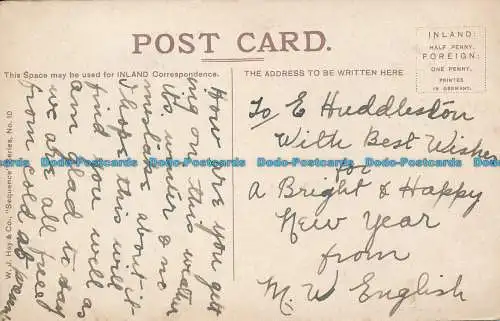 POST CARD.
This Space may be used for INLAND Correspondence.
THE ADDRESS TO BE WRITTEN HERE
INLAND:
HALF PENNY.
FOREIGN:
ONE PENNY.
PRINTED
IN GERMANY.
W. J. Hay & Co., "Sequence" Series, No. 10
How are you gett
ing on this weather
its winter & no
mistake about it
I hope this will
find you well as
am glad to say
we are all free
from cold at
To E Huddleston
With Best Wishes
for
A Bright & Happy
New Year
from
M. W English
Dodo-Postcards Dodo-Postcards Dodo-Postcards Dodo-Postcards Dodo-Postcards